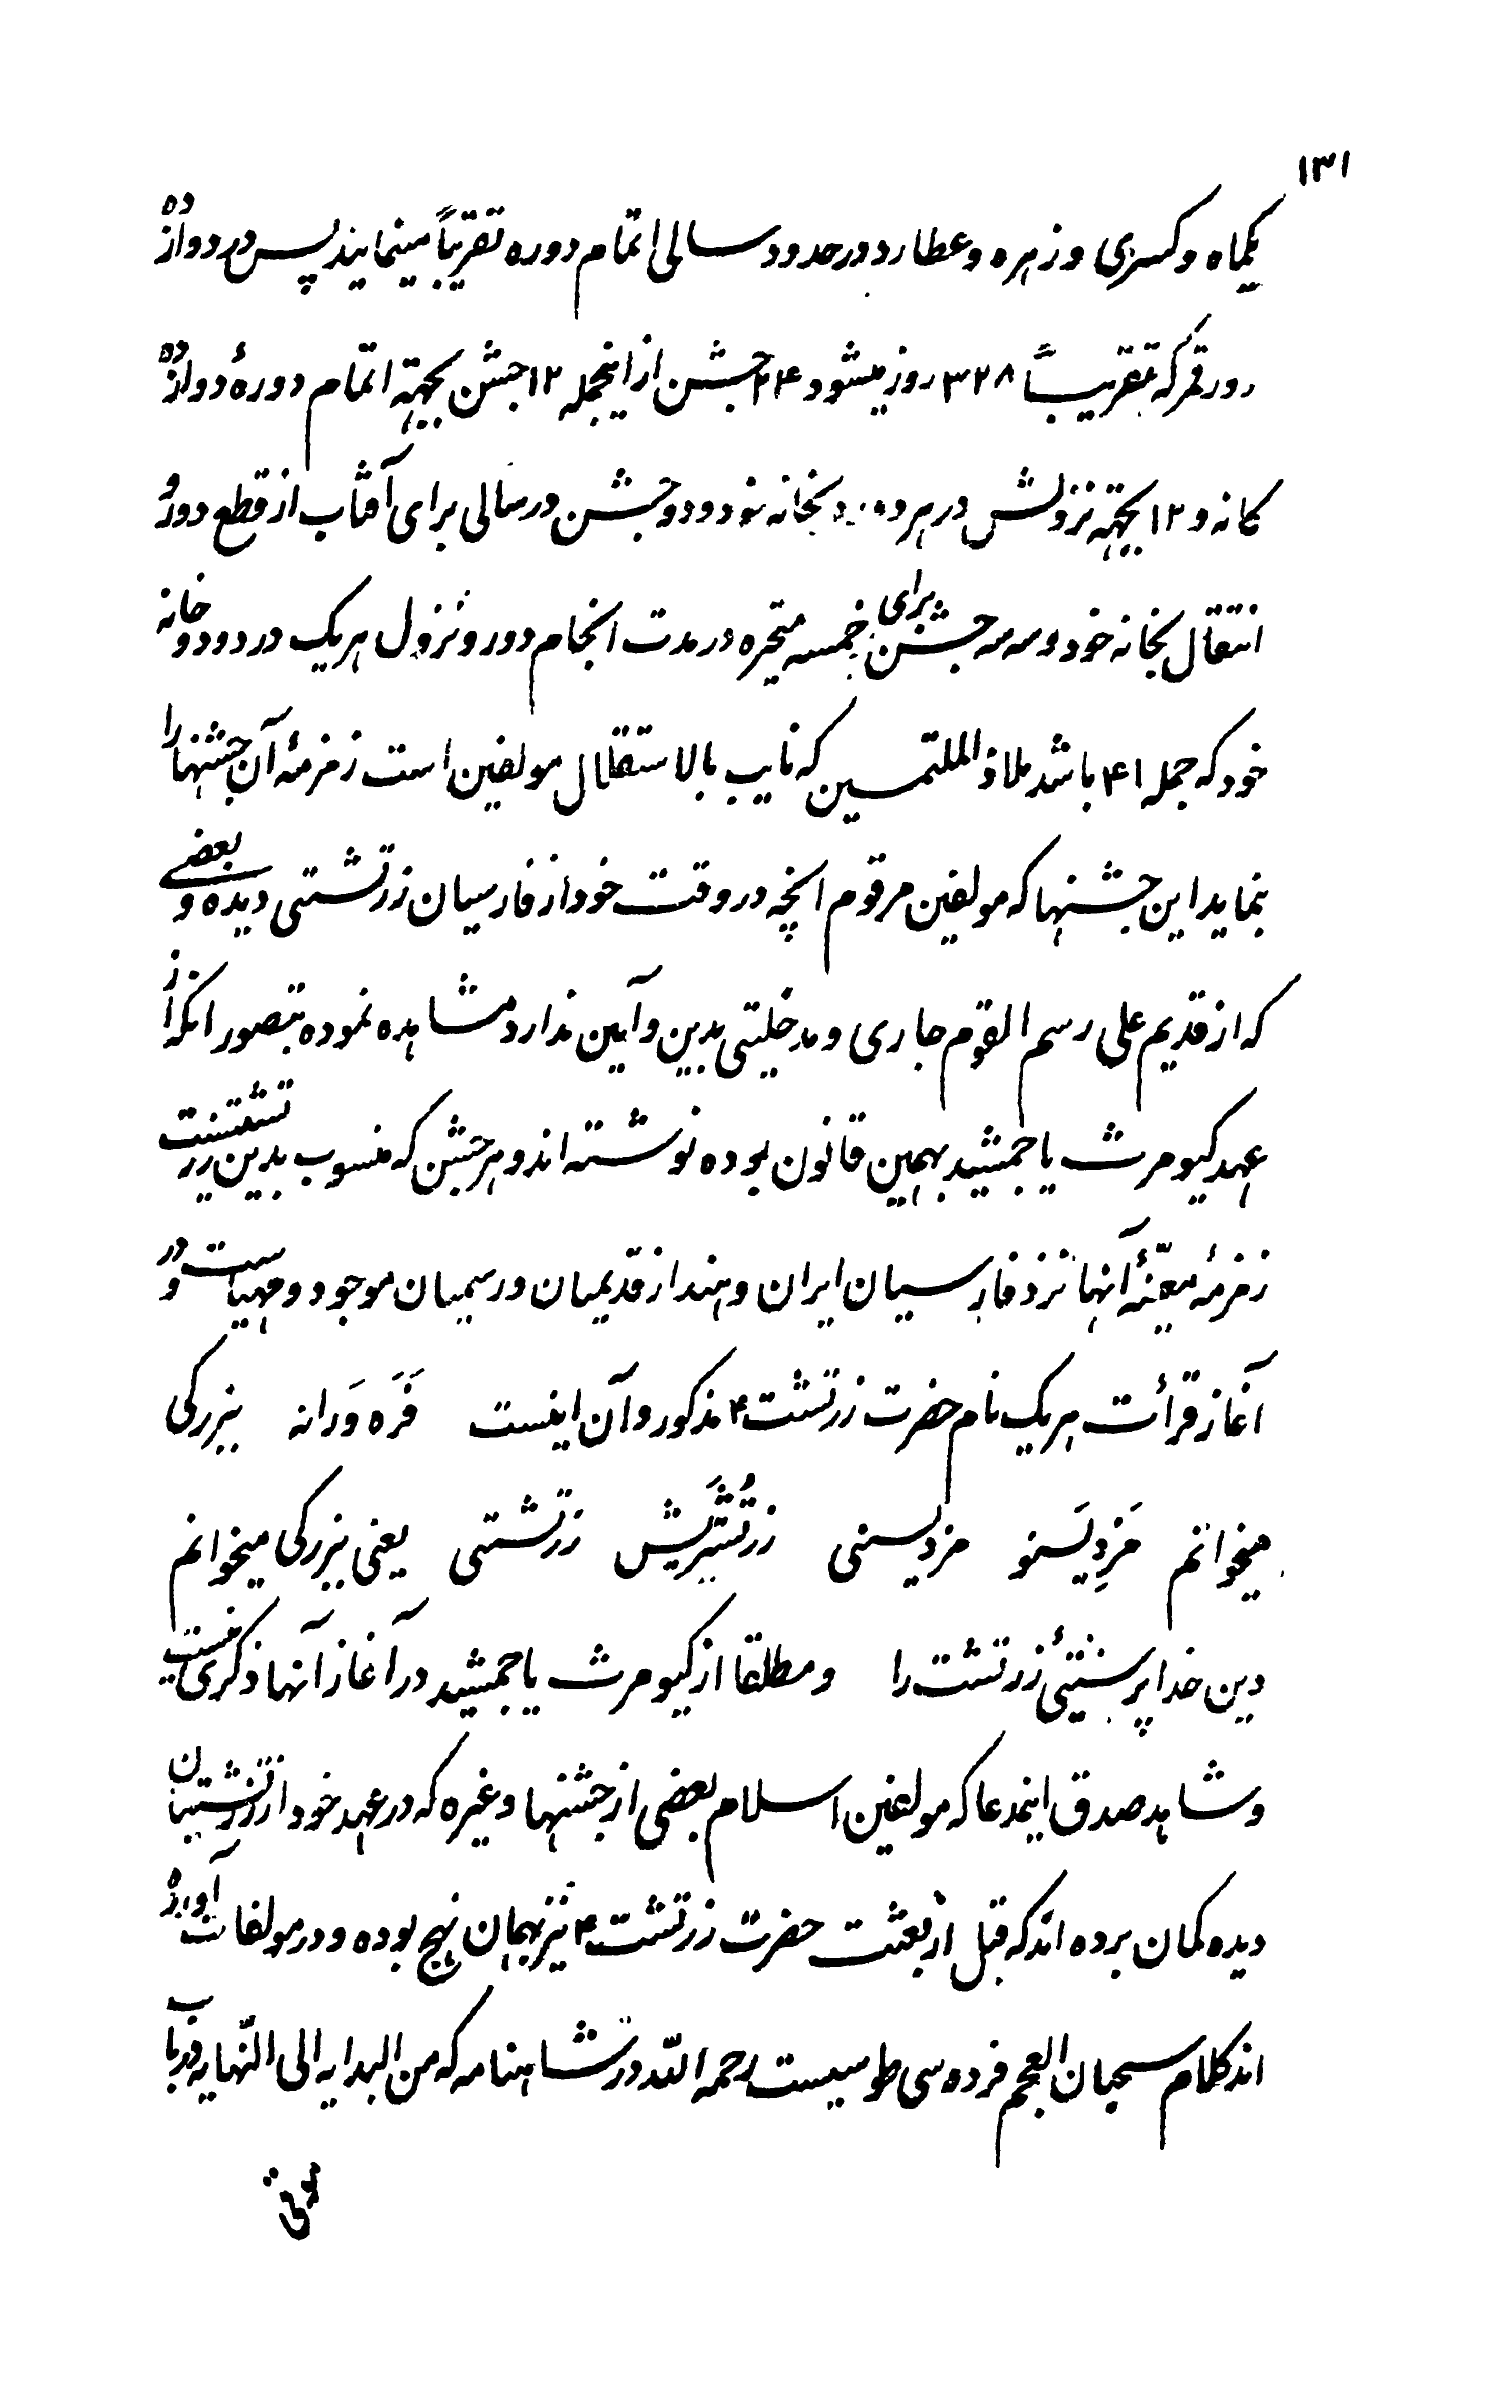 ۱۳۱
یکماه و کسری و زهره و عطارد در حدود سالی اتمام دوره تقریباً مینمایند پس در دوازده
دور قمر که تقریباً ۳۲۸ روز میشود ۲۴ جشن از اینجمله ۱۲ جشن بجهته اتمام دورهٔ دوازده
کانه و ۱۲ بجهته نزولش در هر دو بخانه خود و دو جشن در سالی برای آفتاب از قطع دور و
انتقال بخانه خود و سه سه جشن برای خمسه متحیره در مدت انجام دور و نزول هریک در دو دو خانه
خود که جمله ۴۱ باشد ملاذ الملتمسین که نایب بالاستقلال مولفین است زمزمهٔ آن جشنها را
بنماید این جشنها که مولفین مرقوم انچه در وقت خود از فارسیان زرتشتی دیده و بعضی
که از قدیم علی رسم القوم جاری و مدخلیتی بدین و آیین ندارد مشاهده نموده بتصور انکه از
عهد کیومرث یا جمشید بهمین قانون بوده نوشته اند و هر جشن که منسوب بدین زرتشتست
زمزمهٔ معیّنهٔ آنها نزد فارسیان ایران و هند از قدیمیان و رسمیان موجود و مهیاست و در
آغاز قرأت هریک نام حضرت زرتشت ۴ مذکور و آن اینست فَرَه وَرانه بزرکی
میخوانم مَزدِیَسنو مزدیسنی زرتُشتَریش زرتشتی یعنی بزرکی میخوانم
دین خداپرستیٔ زرتشت را و مطلقا از کیومرث یا جمشید در آغاز آنها ذکری نیست
و شاهد صدق اینمدعا که مولفین اسلام بعضی از جشنها و غیره که در عهد خود از زرتشتیان
دیده کمان برده اند که قبل از بعثت حضرت زرتشت ۴ نیز بهمان نهج بوده و در مولفات آورده
اند کلام سحبان العجم فرده سی طوسیست رحمه اللّه در شاهنامه که من البدایه الی النّهایه در باب